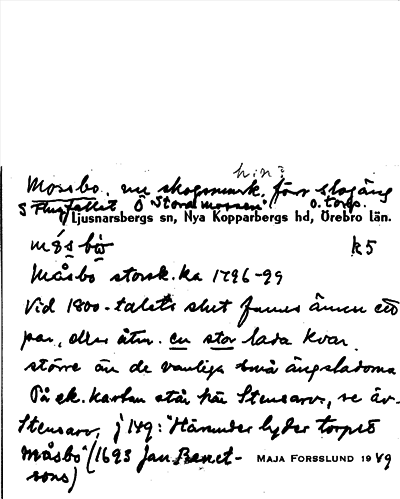 h.n?
Mossbo, nu skogsmark, förr slogäng
S Flugfallet Ö "Stora mossen" o. torp.
Ljusnarsbergs sn, Nya Kopparbergs hd, Örebro län.
k5
Måsbo storsk.ka 1796-99
Vid 1800-talets slut fanns även ett
par, dess åtm. en stor lada kvar,
större än de vanliga små ängsladorna
På ek. kartan står här Stensarv, se äv.
Stensarv, j 149: "Härunder lyder torpet
Måsbo" (1693 Jan Benct-
sons)
MAJA FORSSLUND 1949